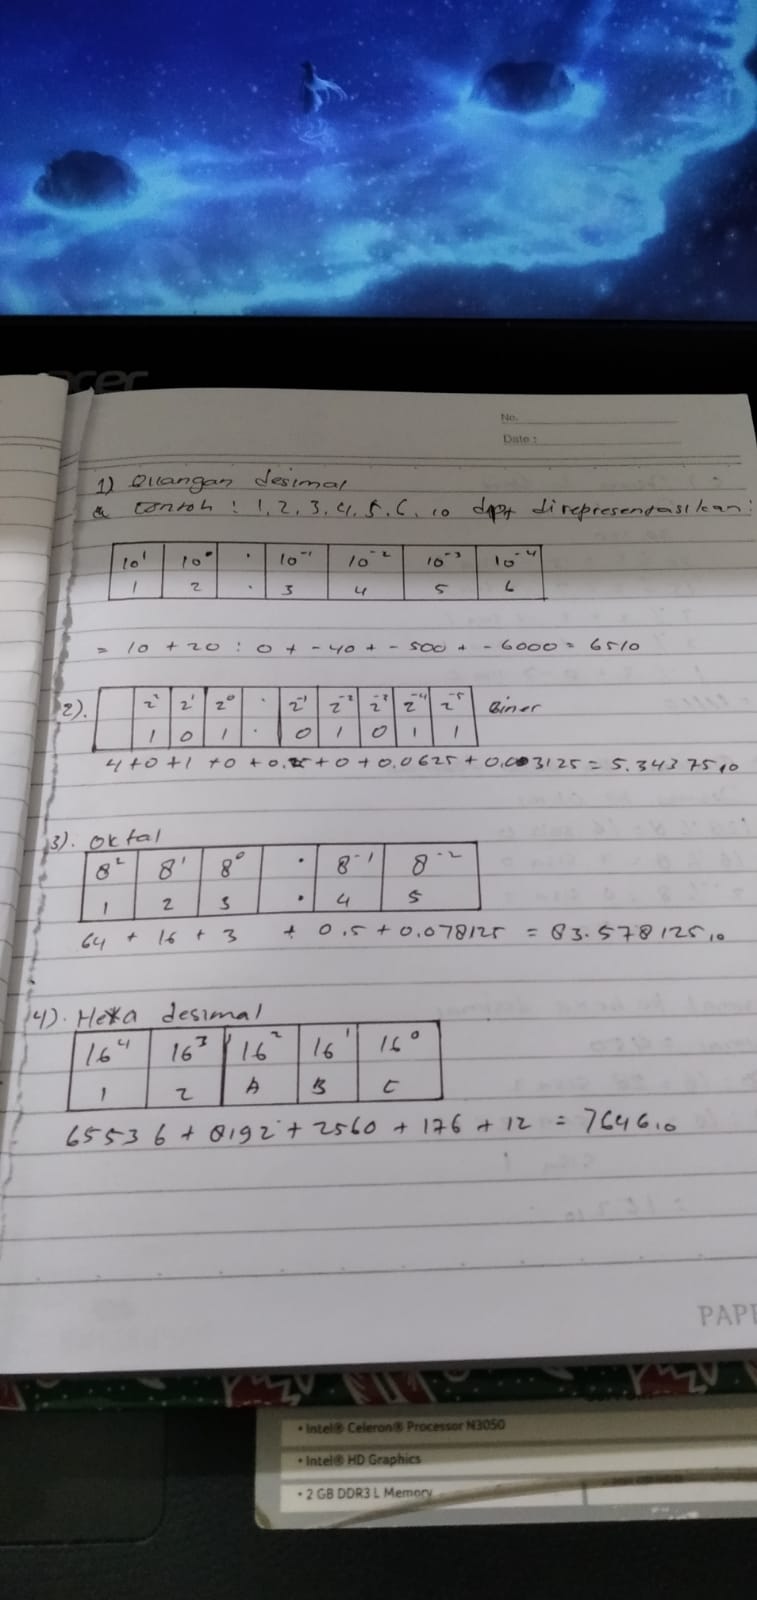 acer
No.
Date :
1) Bilangan desimal
Contoh : 1, 2, 3, 4, 5, 6, 10 dpt direpresentasikan :
10¹ 10⁰ . 10⁻¹ 10⁻² 10⁻³ 10⁻⁴
1 2 . 3 4 5 6
= 10 + 20 : 0 + -40 + -500 + -6000 = 6510
2). 2² 2¹ 2⁰ . 2⁻¹ 2⁻² 2⁻³ 2⁻⁴ 2⁻⁵ Biner
1 0 1 . 0 1 0 1 1
4+0+1 +0 +0.25+0 +0.0625 + 0.03125 = 5.34375₁₀
3). Oktal
8² 8¹ 8⁰ . 8⁻¹ 8⁻²
1 2 3 . 4 5
64 + 16 + 3 + 0.5 + 0.078125 = 83.578125₁₀
4). Heksa desimal
16⁴ 16³ 16² 16¹ 16⁰
1 2 A B C
65536 + 8192 + 2560 + 176 + 12 = 7646₁₀
PAPE
• Intel® Celeron® Processor N3050
• Intel® HD Graphics
• 2 GB DDR3 L Memory